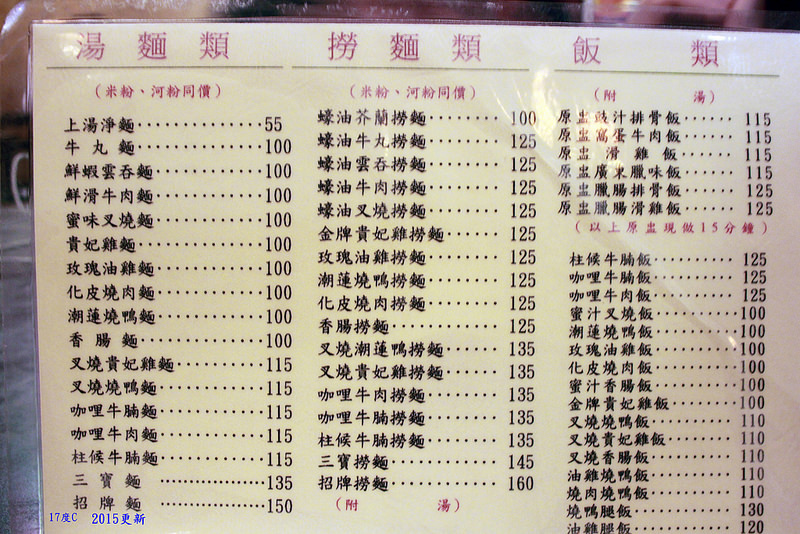 湯麵類
(米粉、河粉同價)
上湯淨麵 55
牛丸麵 100
鮮蝦雲吞麵 100
鮮滑牛肉麵 100
蜜味叉燒麵 100
貴妃雞麵 100
玫瑰油雞麵 100
化皮燒肉麵 100
潮蓮燒鴨麵 100
香腸麵 100
叉燒貴妃雞麵 115
叉燒燒鴨麵 115
咖哩牛腩麵 115
咖哩牛肉麵 115
柱候牛腩麵 115
三寶麵 135
招牌麵 150
撈麵類
(米粉、河粉同價)
蠔油芥蘭撈麵 100
蠔油牛丸撈麵 125
蠔油雲吞撈麵 125
蠔油牛肉撈麵 125
蠔油叉燒撈麵 125
金牌貴妃雞撈麵 125
玫瑰油雞撈麵 125
潮蓮燒鴨撈麵 125
化皮燒肉撈麵 125
香腸撈麵 125
叉燒潮蓮鴨撈麵 135
叉燒貴妃雞撈麵 135
咖哩牛肉撈麵 135
咖哩牛腩撈麵 135
柱候牛腩撈麵 135
三寶撈麵 145
招牌撈麵 160
(附湯)
飯類
(附湯)
原盅豉汁排骨飯 115
原盅窩蛋牛肉飯 115
原盅滑雞飯 115
原盅廣東臘味飯 115
原盅臘腸排骨飯 125
原盅臘腸滑雞飯 125
(以上原盅現做15分鐘)
柱候牛腩飯 125
咖哩牛腩飯 125
咖哩牛肉飯 125
蜜汁叉燒飯 100
潮蓮燒鴨飯 100
玫瑰油雞飯 100
化皮燒肉飯 100
蜜汁香腸飯 100
金牌貴妃雞飯 100
叉燒燒鴨飯 110
叉燒貴妃雞飯 110
叉燒香腸飯 110
油雞燒鴨飯 110
燒肉燒鴨飯 110
燒鴨腿飯 130
油雞腿飯 120
17度C 2015更新